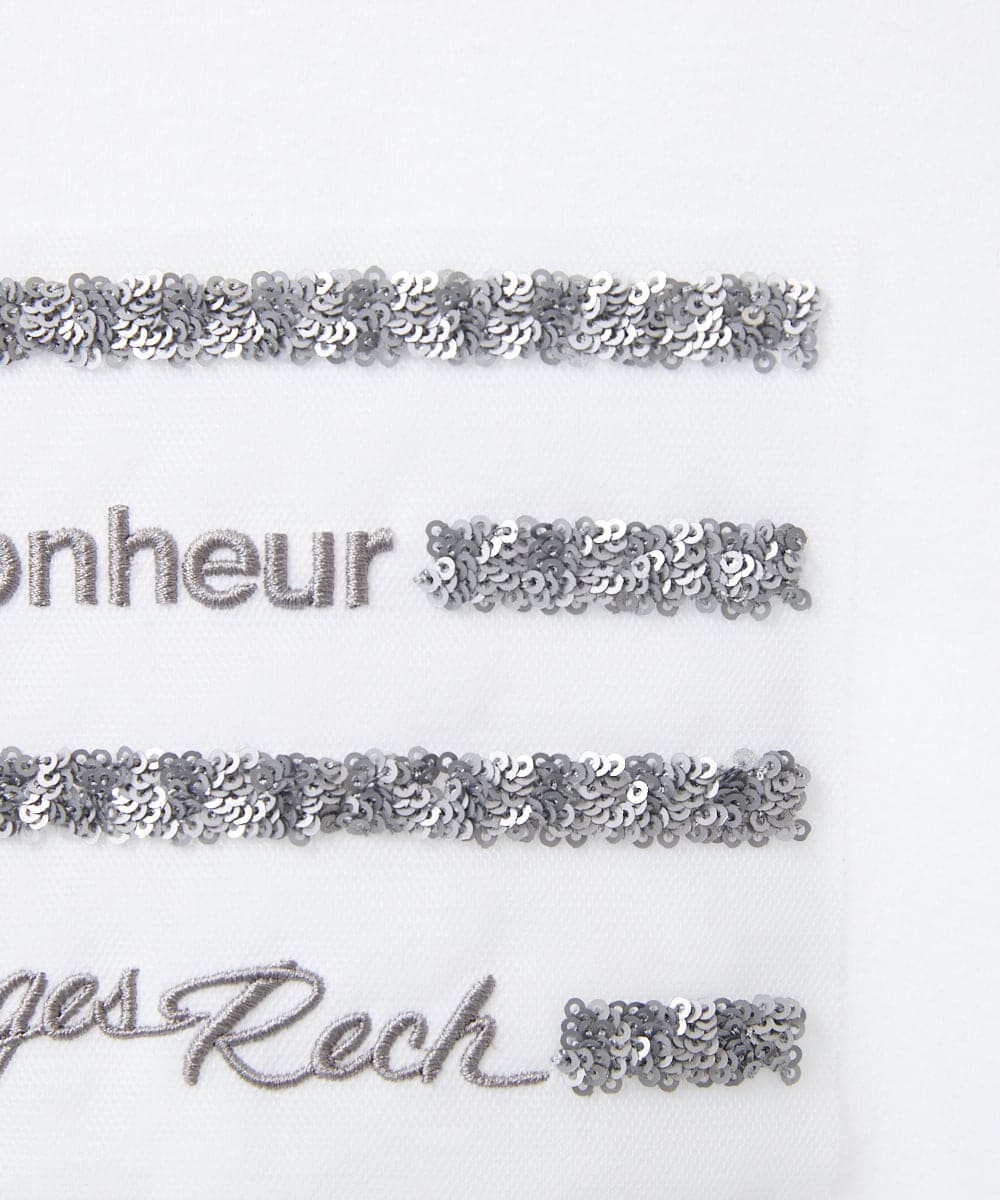 onheur
ges Rech